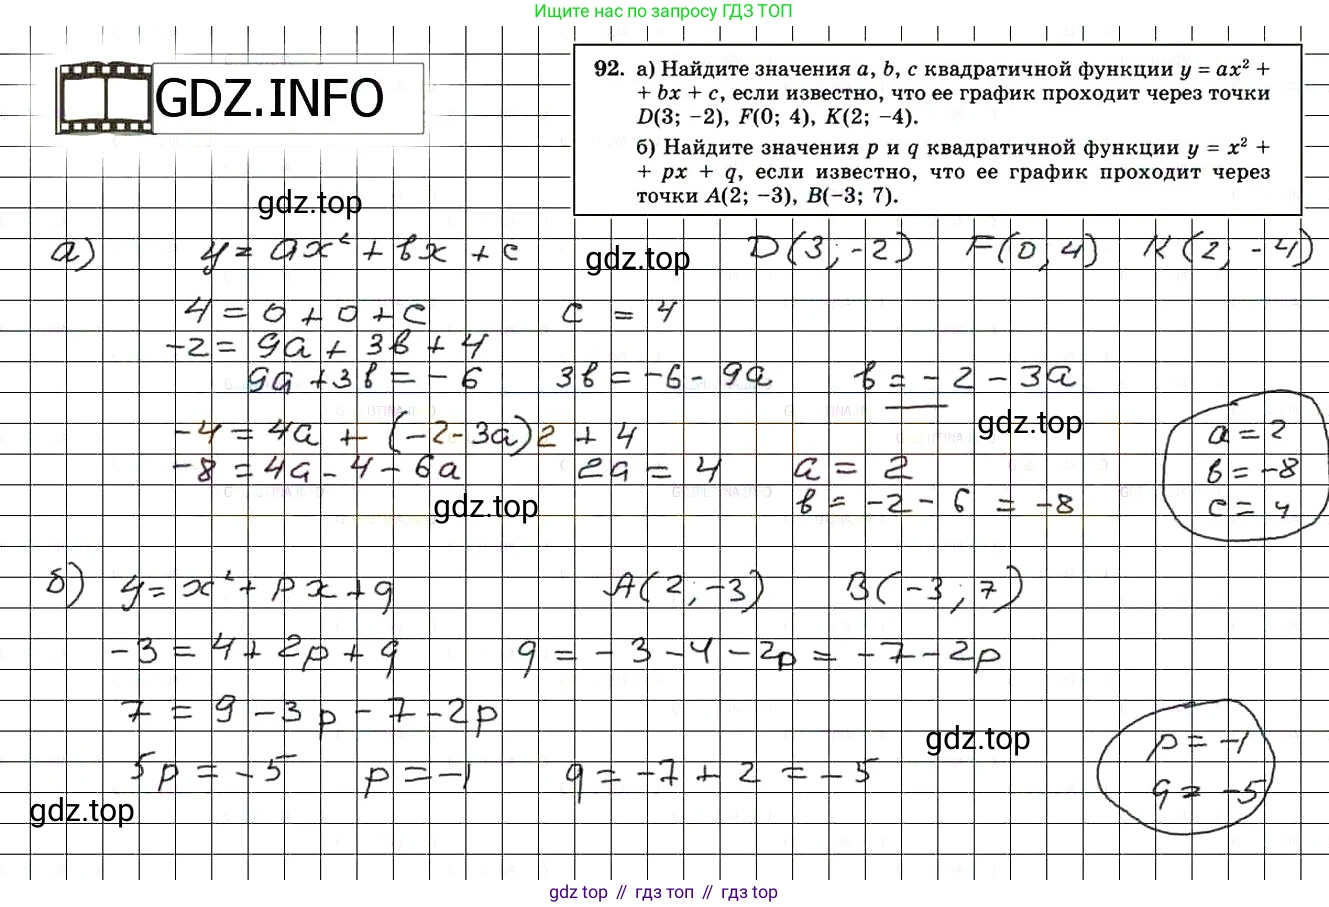 Ищите нас по запросу ГДЗ ТОП
GDZ.INFO
92. а) Найдите значения a, b, c квадратичной функции y = ax² +
+ bx + c, если известно, что ее график проходит через точки
D(3; −2), F(0; 4), K(2; −4).
б) Найдите значения p и q квадратичной функции y = x² +
+ px + q, если известно, что ее график проходит через
точки A(2; −3), B(−3; 7).
gdz.top
а) y = ax² + bx + c D(3; -2) F(0, 4) K(2; -4)
gdz.top
4 = 0 + 0 + c c = 4
-2 = 9a + 3b + 4
9a + 3b = -6 3b = -6 - 9a b = -2 - 3a
gdz.top
-4 = 4a + (-2-3a)2 + 4
-8 = 4a - 4 - 6a 2a = 4 a = 2
b = -2 - 6 = -8
gdz.top
a = 2
b = -8
c = 4
б) y = x² + px + q A(2; -3) B(-3; 7)
-3 = 4 + 2p + q q = -3 - 4 - 2p = -7 - 2p
7 = 9 - 3p - 7 - 2p
gdz.top
5p = -5 p = -1 q = -7 + 2 = -5
p = -1
q = -5
gdz.top
gdz top // гдз топ // гдз top